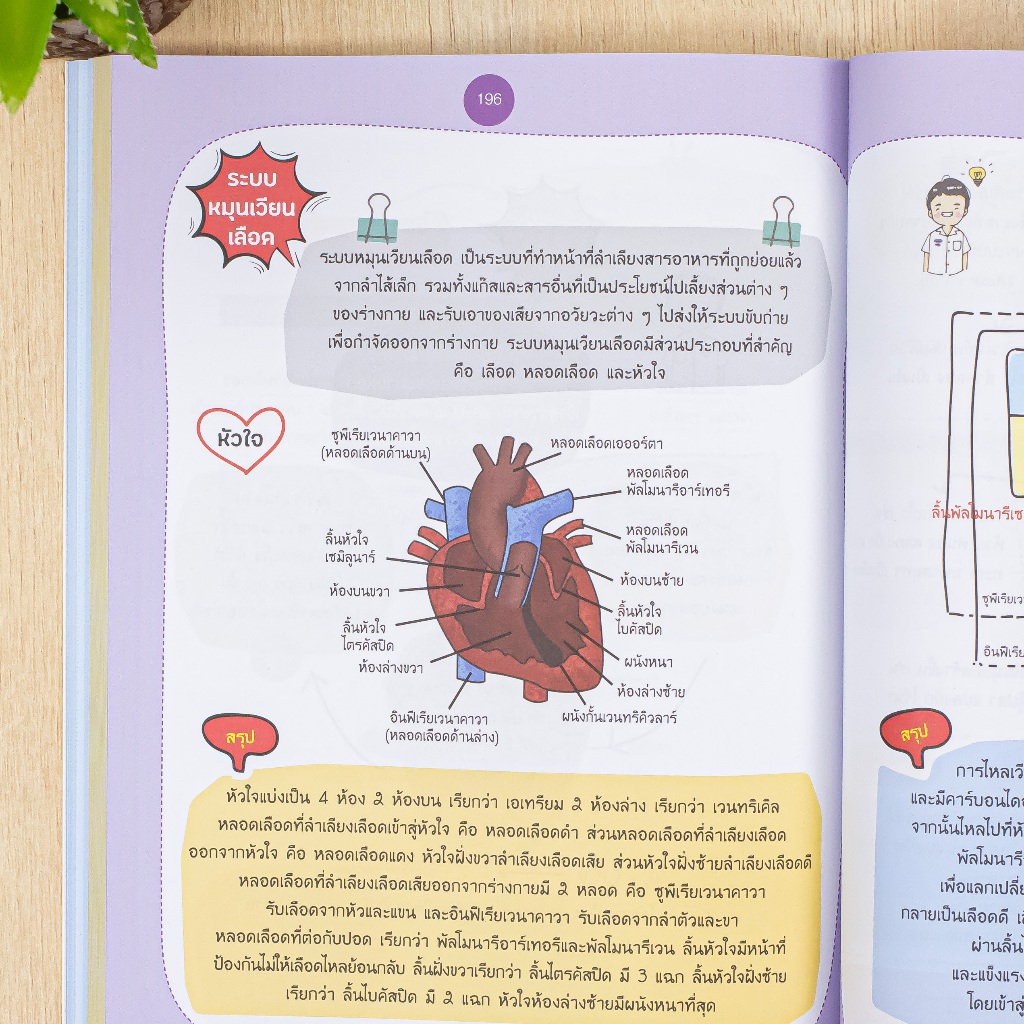 196
ระบบ
หมุนเวียน
เลือด
ระบบหมุนเวียนเลือด เป็นระบบที่ทำหน้าที่ลำเลียงสารอาหารที่ถูกย่อยแล้ว
จากลำไส้เล็ก รวมทั้งแก๊สและสารอื่นที่เป็นประโยชน์ไปเลี้ยงส่วนต่าง ๆ
ของร่างกาย และรับเอาของเสียจากอวัยวะต่าง ๆ ไปส่งให้ระบบขับถ่าย
เพื่อกำจัดออกจากร่างกาย ระบบหมุนเวียนเลือดมีส่วนประกอบที่สำคัญ
คือ เลือด หลอดเลือด และหัวใจ
หัวใจ
ซูพีเรียเวนาคาวา
(หลอดเลือดด้านบน)
หลอดเลือดเอออร์ตา
หลอดเลือด
พัลโมนารีอาร์เทอรี
หลอดเลือด
พัลโมนารีเวน
ลิ้นหัวใจ
เซมิลูนาร์
ห้องบนซ้าย
ห้องบนขวา
ลิ้นหัวใจ
ไบคัสปิด
ลิ้นหัวใจ
ไตรคัสปิด
ผนังหนา
ห้องล่างขวา
ห้องล่างซ้าย
อินฟีเรียเวนาคาวา
(หลอดเลือดด้านล่าง)
ผนังกั้นเวนทริคิวลาร์
สรุป
หัวใจแบ่งเป็น 4 ห้อง 2 ห้องบน เรียกว่า เอเทรียม 2 ห้องล่าง เรียกว่า เวนทริเคิล
หลอดเลือดที่ลำเลียงเลือดเข้าสู่หัวใจ คือ หลอดเลือดดำ ส่วนหลอดเลือดที่ลำเลียงเลือด
ออกจากหัวใจ คือ หลอดเลือดแดง หัวใจฝั่งขวาลำเลียงเลือดเสีย ส่วนหัวใจฝั่งซ้ายลำเลียงเลือดดี
หลอดเลือดที่ลำเลียงเลือดเสียออกจากร่างกายมี 2 หลอด คือ ซูพีเรียเวนาคาวา
รับเลือดจากหัวและแขน และอินฟีเรียเวนาคาวา รับเลือดจากลำตัวและขา
หลอดเลือดที่ต่อกับปอด เรียกว่า พัลโมนารีอาร์เทอรีและพัลโมนารีเวน ลิ้นหัวใจมีหน้าที่
ป้องกันไม่ให้เลือดไหลย้อนกลับ ลิ้นฝั่งขวาเรียกว่า ลิ้นไตรคัสปิด มี 3 แฉก ลิ้นหัวใจฝั่งซ้าย
เรียกว่า ลิ้นไบคัสปิด มี 2 แฉก หัวใจห้องล่างซ้ายมีผนังหนาที่สุด
ลิ้นพัลโมนารีเซ
ซูพีเรียเว
อินฟีเรีย
สรุป
การไหลเวี
และมีคาร์บอนได
จากนั้นไหลไปที่หั
พัลโมนารี
เพื่อแลกเปลี่ย
กลายเป็นเลือดดี
ผ่านลิ้น
และแข็งแรง
โดยเข้าสู่